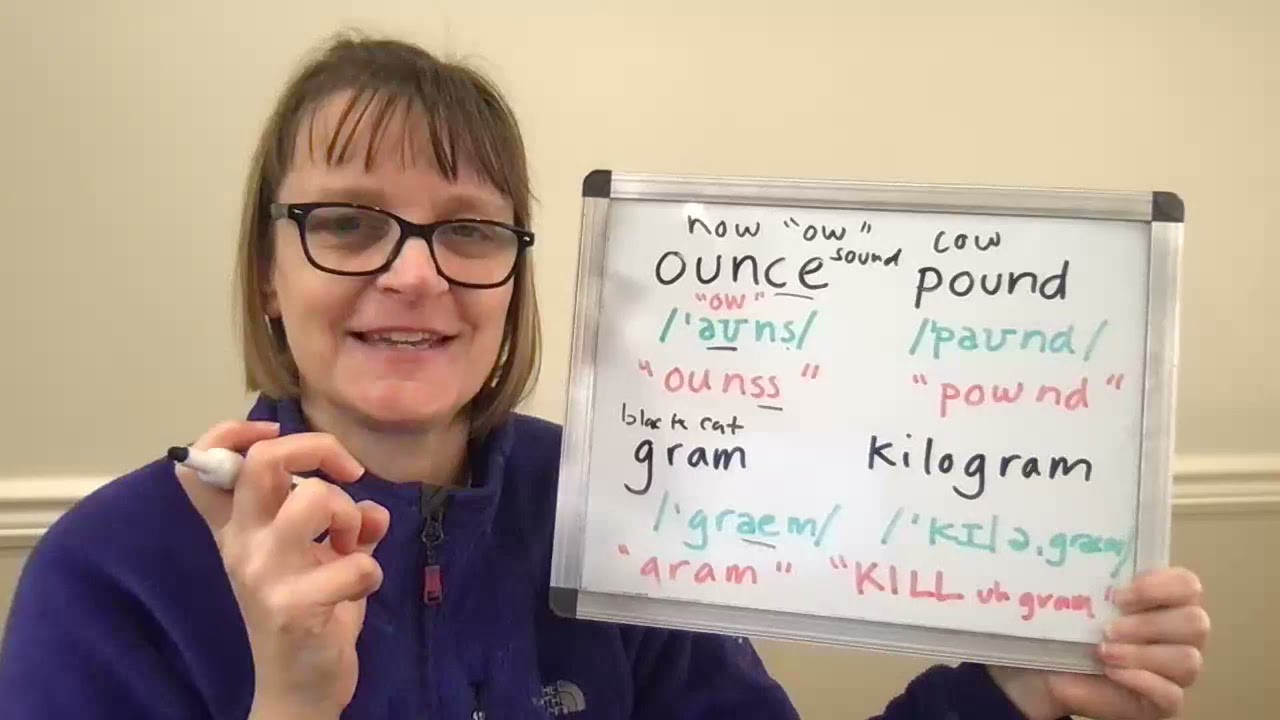 now "ow" cow
ounce sound pound
"ow"
/ˈaʊns/ /ˈpaʊnd/
"ounss" "pownd"
black cat
gram kilogram
/ˈgræm/ /ˈkɪlə.græm/
"gram" "KILL uh gram"
THE NORTH FACE